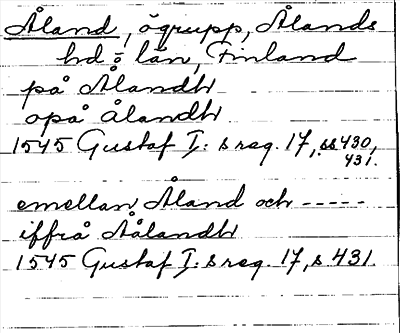 Åland, ögrupp, Ålands
hd o län, Finland
på Ålandh
opå åландh
1545 Gustaf I:s reg. 17, ss 430,
431.
emellan Åland och -----
iffrå Aålandh
1545 Gustaf I:s reg. 17, s 431.